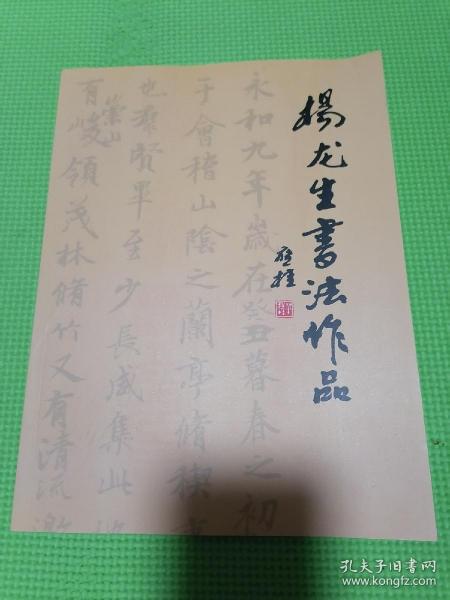 楊龙生書法作品
啓樁
永和九年歲在癸丑暮春之初
于會稽山陰之蘭亭脩稧
也羣賢畢至少長咸集此
有崇山峻領茂林脩竹又有清流激
孔夫子旧书网
www.kongfz.com